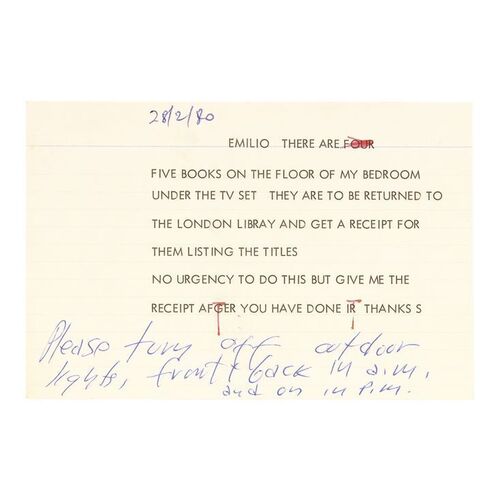 28/2/80
EMILIO THERE ARE FOUR
FIVE BOOKS ON THE FLOOR OF MY BEDROOM
UNDER THE TV SET THEY ARE TO BE RETURNED TO
THE LONDON LIBRAY AND GET A RECEIPT FOR
THEM LISTING THE TITLES
NO URGENCY TO DO THIS BUT GIVE ME THE
RECEIPT AFGER YOU HAVE DONE IR THANKS S
Please turn off outdoor
lights, front & back in a.m,
and on in p.m.